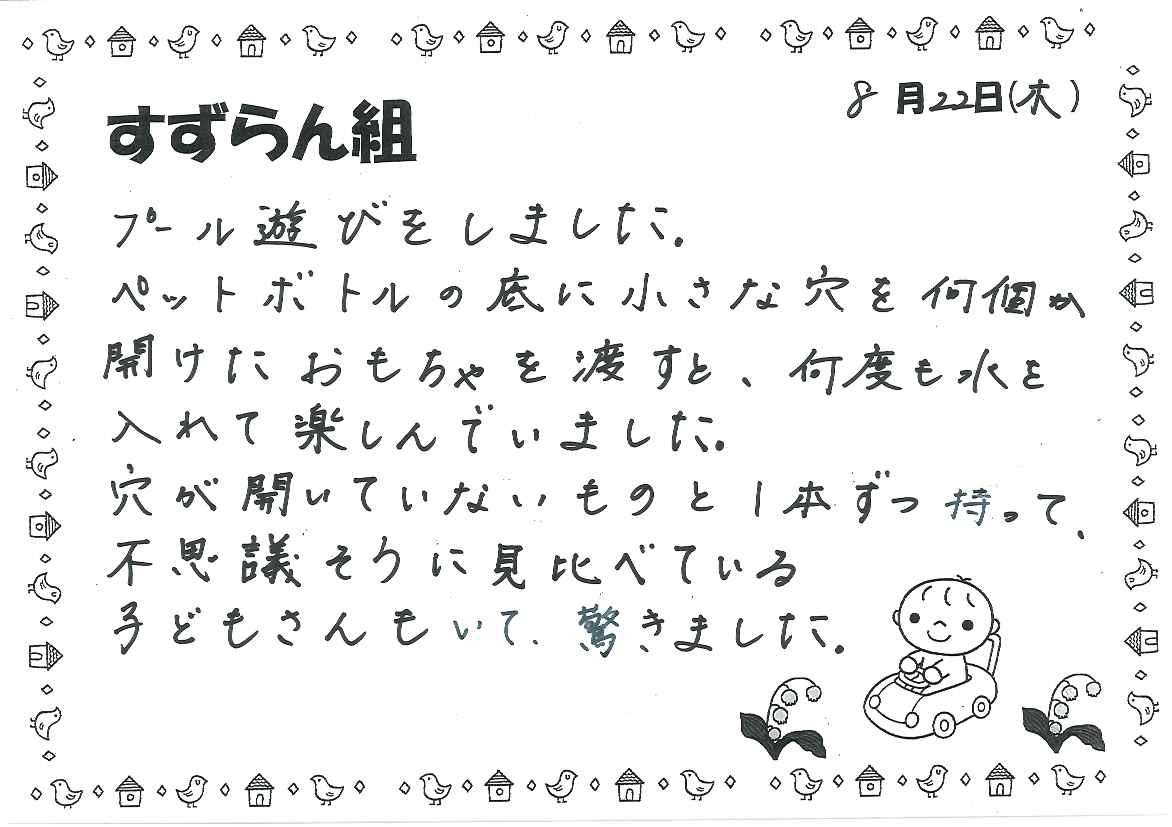 8月22日(木)
すずらん組
プール遊びをしました。
ペットボトルの底に小さな穴を何個か
開けたおもちゃを渡すと、何度も水を
入れて楽しんでいました。
穴が開いていないものと1本ずつ持って、
不思議そうに見比べている
子どもさんもいて、驚きました。